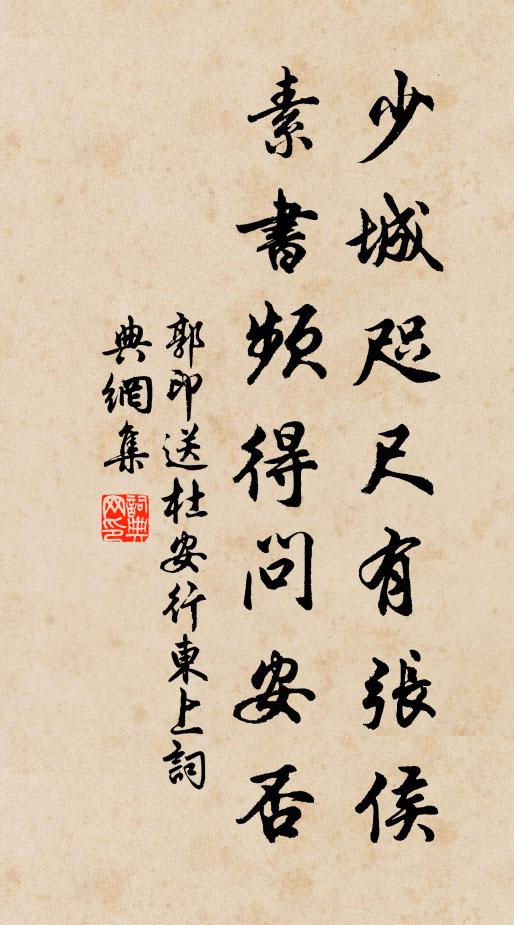 少城咫尺有張侯
素書頻得問安否
郭印送杜安行東上詞
典網集
詞典
网印